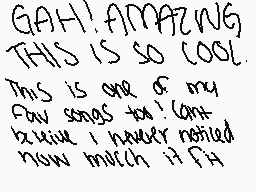 GAH! AMAZING
THIS IS SO COOL.
This is one of my
Fav songs too! Cant
beleive I never noticed
how much it fit